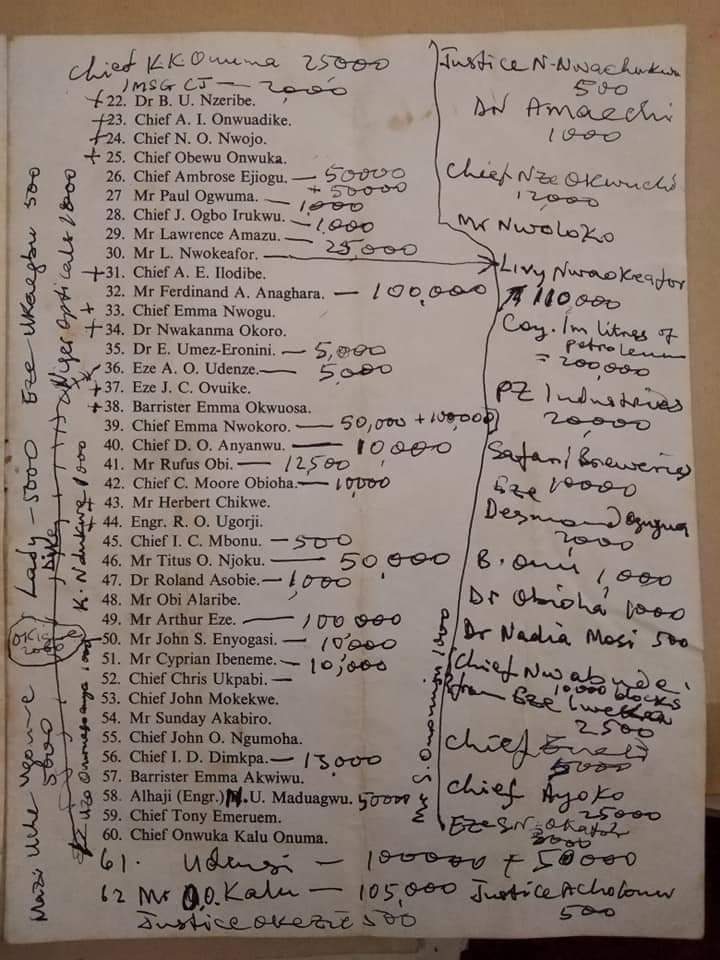 Chief K K Onuma 25000
IMSG CJ — 2,000
22. Dr B. U. Nzeribe.
23. Chief A. I. Onwuadike.
24. Chief N. O. Nwojo.
25. Chief Obewu Onwuka.
26. Chief Ambrose Ejiogu. — 50000
+ 50000
27 Mr Paul Ogwuma. — 1,000
28. Chief J. Ogbo Irukwu. — 1,000
29. Mr Lawrence Amazu.
30. Mr L. Nwokeafor. — 25,000
31. Chief A. E. Ilodibe.
32. Mr Ferdinand A. Anaghara. — 100,000
33. Chief Emma Nwogu.
34. Dr Nwakanma Okoro.
35. Dr E. Umez-Eronini. — 5,000
36. Eze A. O. Udenze. — 5,000
37. Eze J. C. Ovuike.
38. Barrister Emma Okwuosa.
39. Chief Emma Nwokoro. — 50,000 + 100,000
40. Chief D. O. Anyanwu. — 10,000
41. Mr Rufus Obi. — 12,500
42. Chief C. Moore Obioha. — 10,000
43. Mr Herbert Chikwe.
44. Engr. R. O. Ugorji.
45. Chief I. C. Mbonu. — 500
46. Mr Titus O. Njoku. — 50,000
47. Dr Roland Asobie. — 1,000
48. Mr Obi Alaribe.
49. Mr Arthur Eze. — 100000
50. Mr John S. Enyogasi. — 10,000
51. Mr Cyprian Ibeneme. — 10,000
52. Chief Chris Ukpabi. —
53. Chief John Mokekwe.
54. Mr Sunday Akabiro.
55. Chief John O. Ngumoha.
56. Chief I. D. Dimkpa. — 15,000
57. Barrister Emma Akwiwu.
58. Alhaji (Engr.) N. U. Maduagwu. 50000
59. Chief Tony Emeruem.
60. Chief Onwuka Kalu Onuma.
61. Udensi — 100000 + 50000
62 Mr O.O. Kalu — 105,000
Justice Okezie 500
Justice N. Nwachukwu
500
Dr Amaechi
1000
Chief Nze Okwuchi
12,000
Mr Nwoloko
Livy Nwaokeafor
110,000
Coy. 1m litres of
petroleum
= 200,000
PZ Industries
20,000
Safari Breweries
10000
Eze
Desmond Ogugua
2,000
B. Onu 1,000
Dr Obioha 1000
Dr Nadia Mosi 500
Chief Nwabude
10,000 blocks
Eze
2500
Chief
5000
Chief Ayoko
25000
Eze S.N. Okafor
3000
Justice Acholonu
500
Mazi Uche Ngoune
5000
Lady — 5000 Eze Ukaegbu 500
Niger Opticals 1000
K. Ndukwe 1000
2000